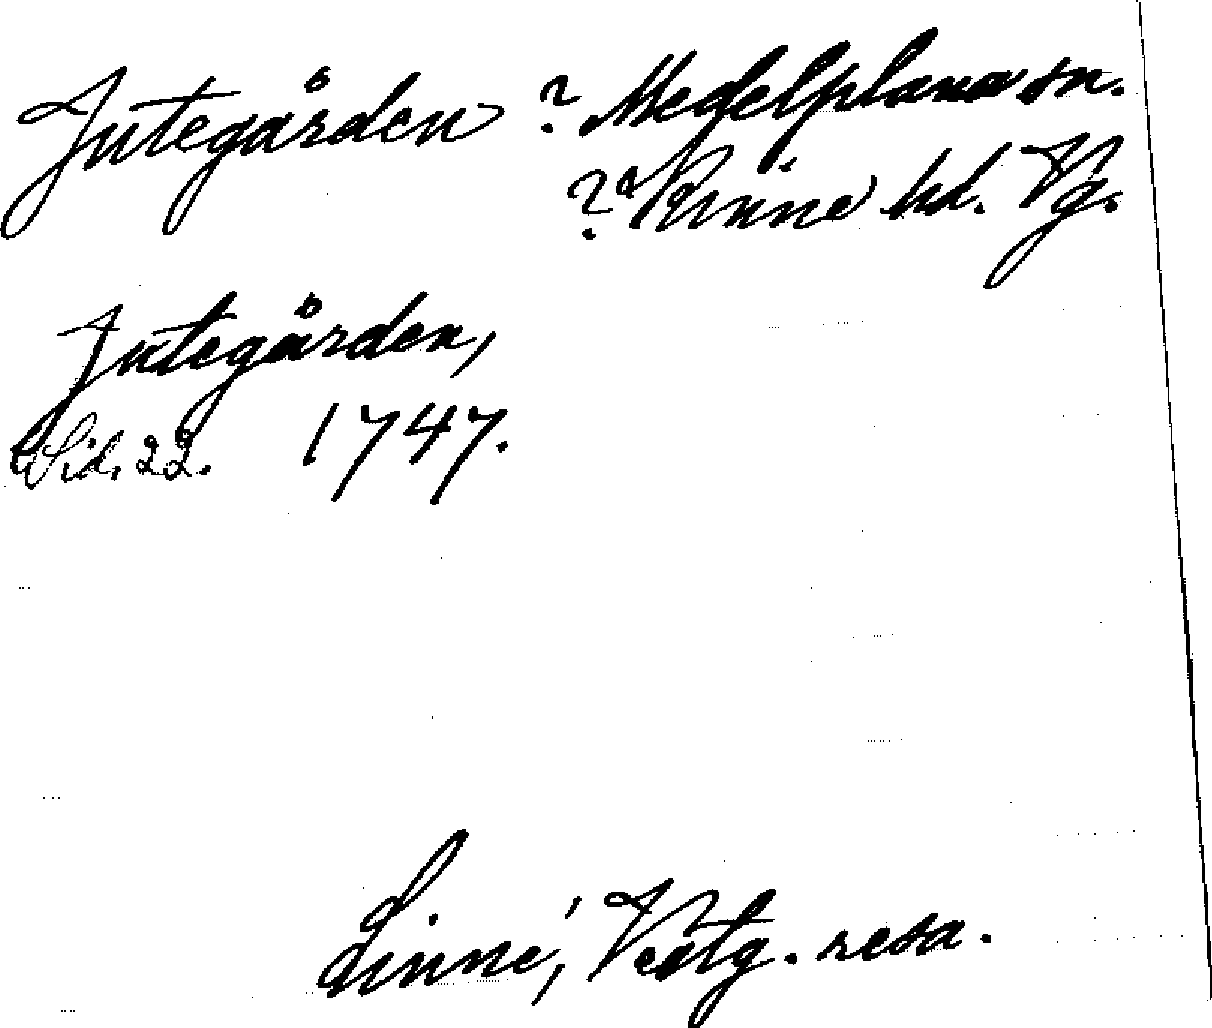 Jutegården ? Medelplana sn.
? Kinne hd. Vg.
Jutegården,
Sid. 22. 1747.
Linné, Västg. resa.